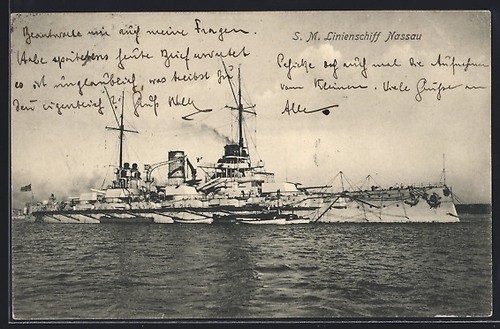 S. M. Linienschiff Nassau
Beantworte mir auch meine Fragen.
Habe spätestens heute Brief erwartet
es ist unglaublich, was treibst Du
den eigentlich? Gruß
Schicke doch auch mal die Aufnahmen
vom Kleinen. Viele Grüße an
Alle